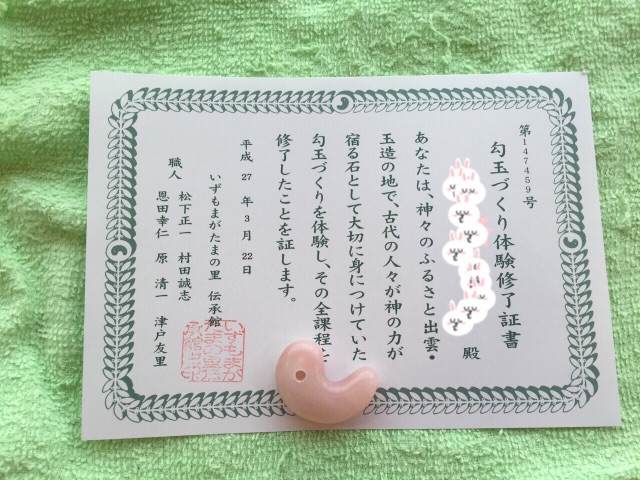 第147459号
勾玉づくり体験修了証書
殿
あなたは、神々のふるさと出雲・
玉造の地で、古代の人々が神の力が
宿る石として大切に身につけていた
勾玉づくりを体験し、その全課程を
修了したことを証します。
平成27年3月22日
いずもまがたまの里 伝承館
職人 松下正一 村田誠志
恩田幸仁 原 清一 津戸友里
いずもまが
たまの里